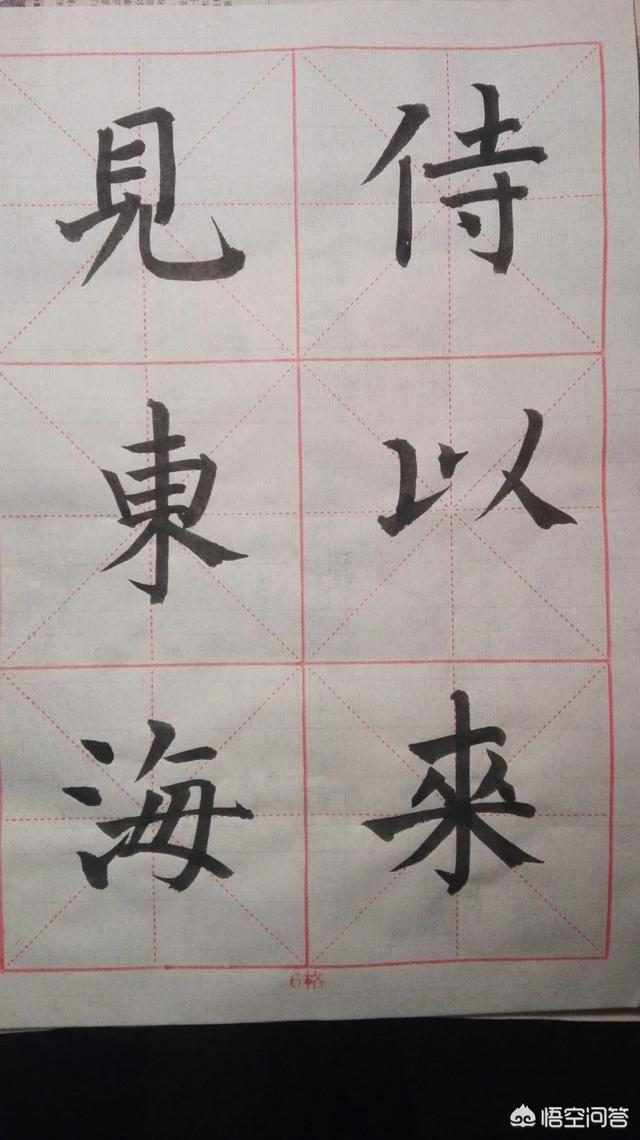 侍以來
見東海
6格
悟空问答